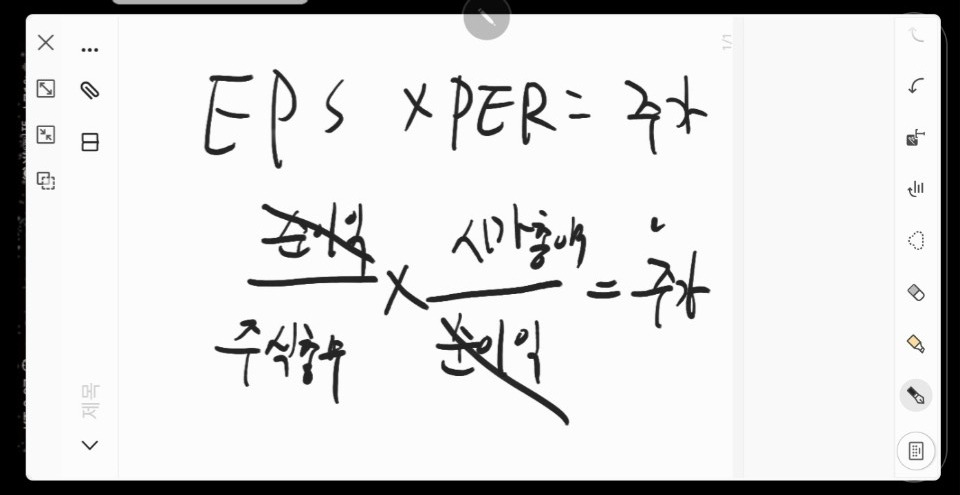 1/1
EPS × PER = 주가
순이익 / 주식총수 × 시가총액 / 순이익 = 주가
제목